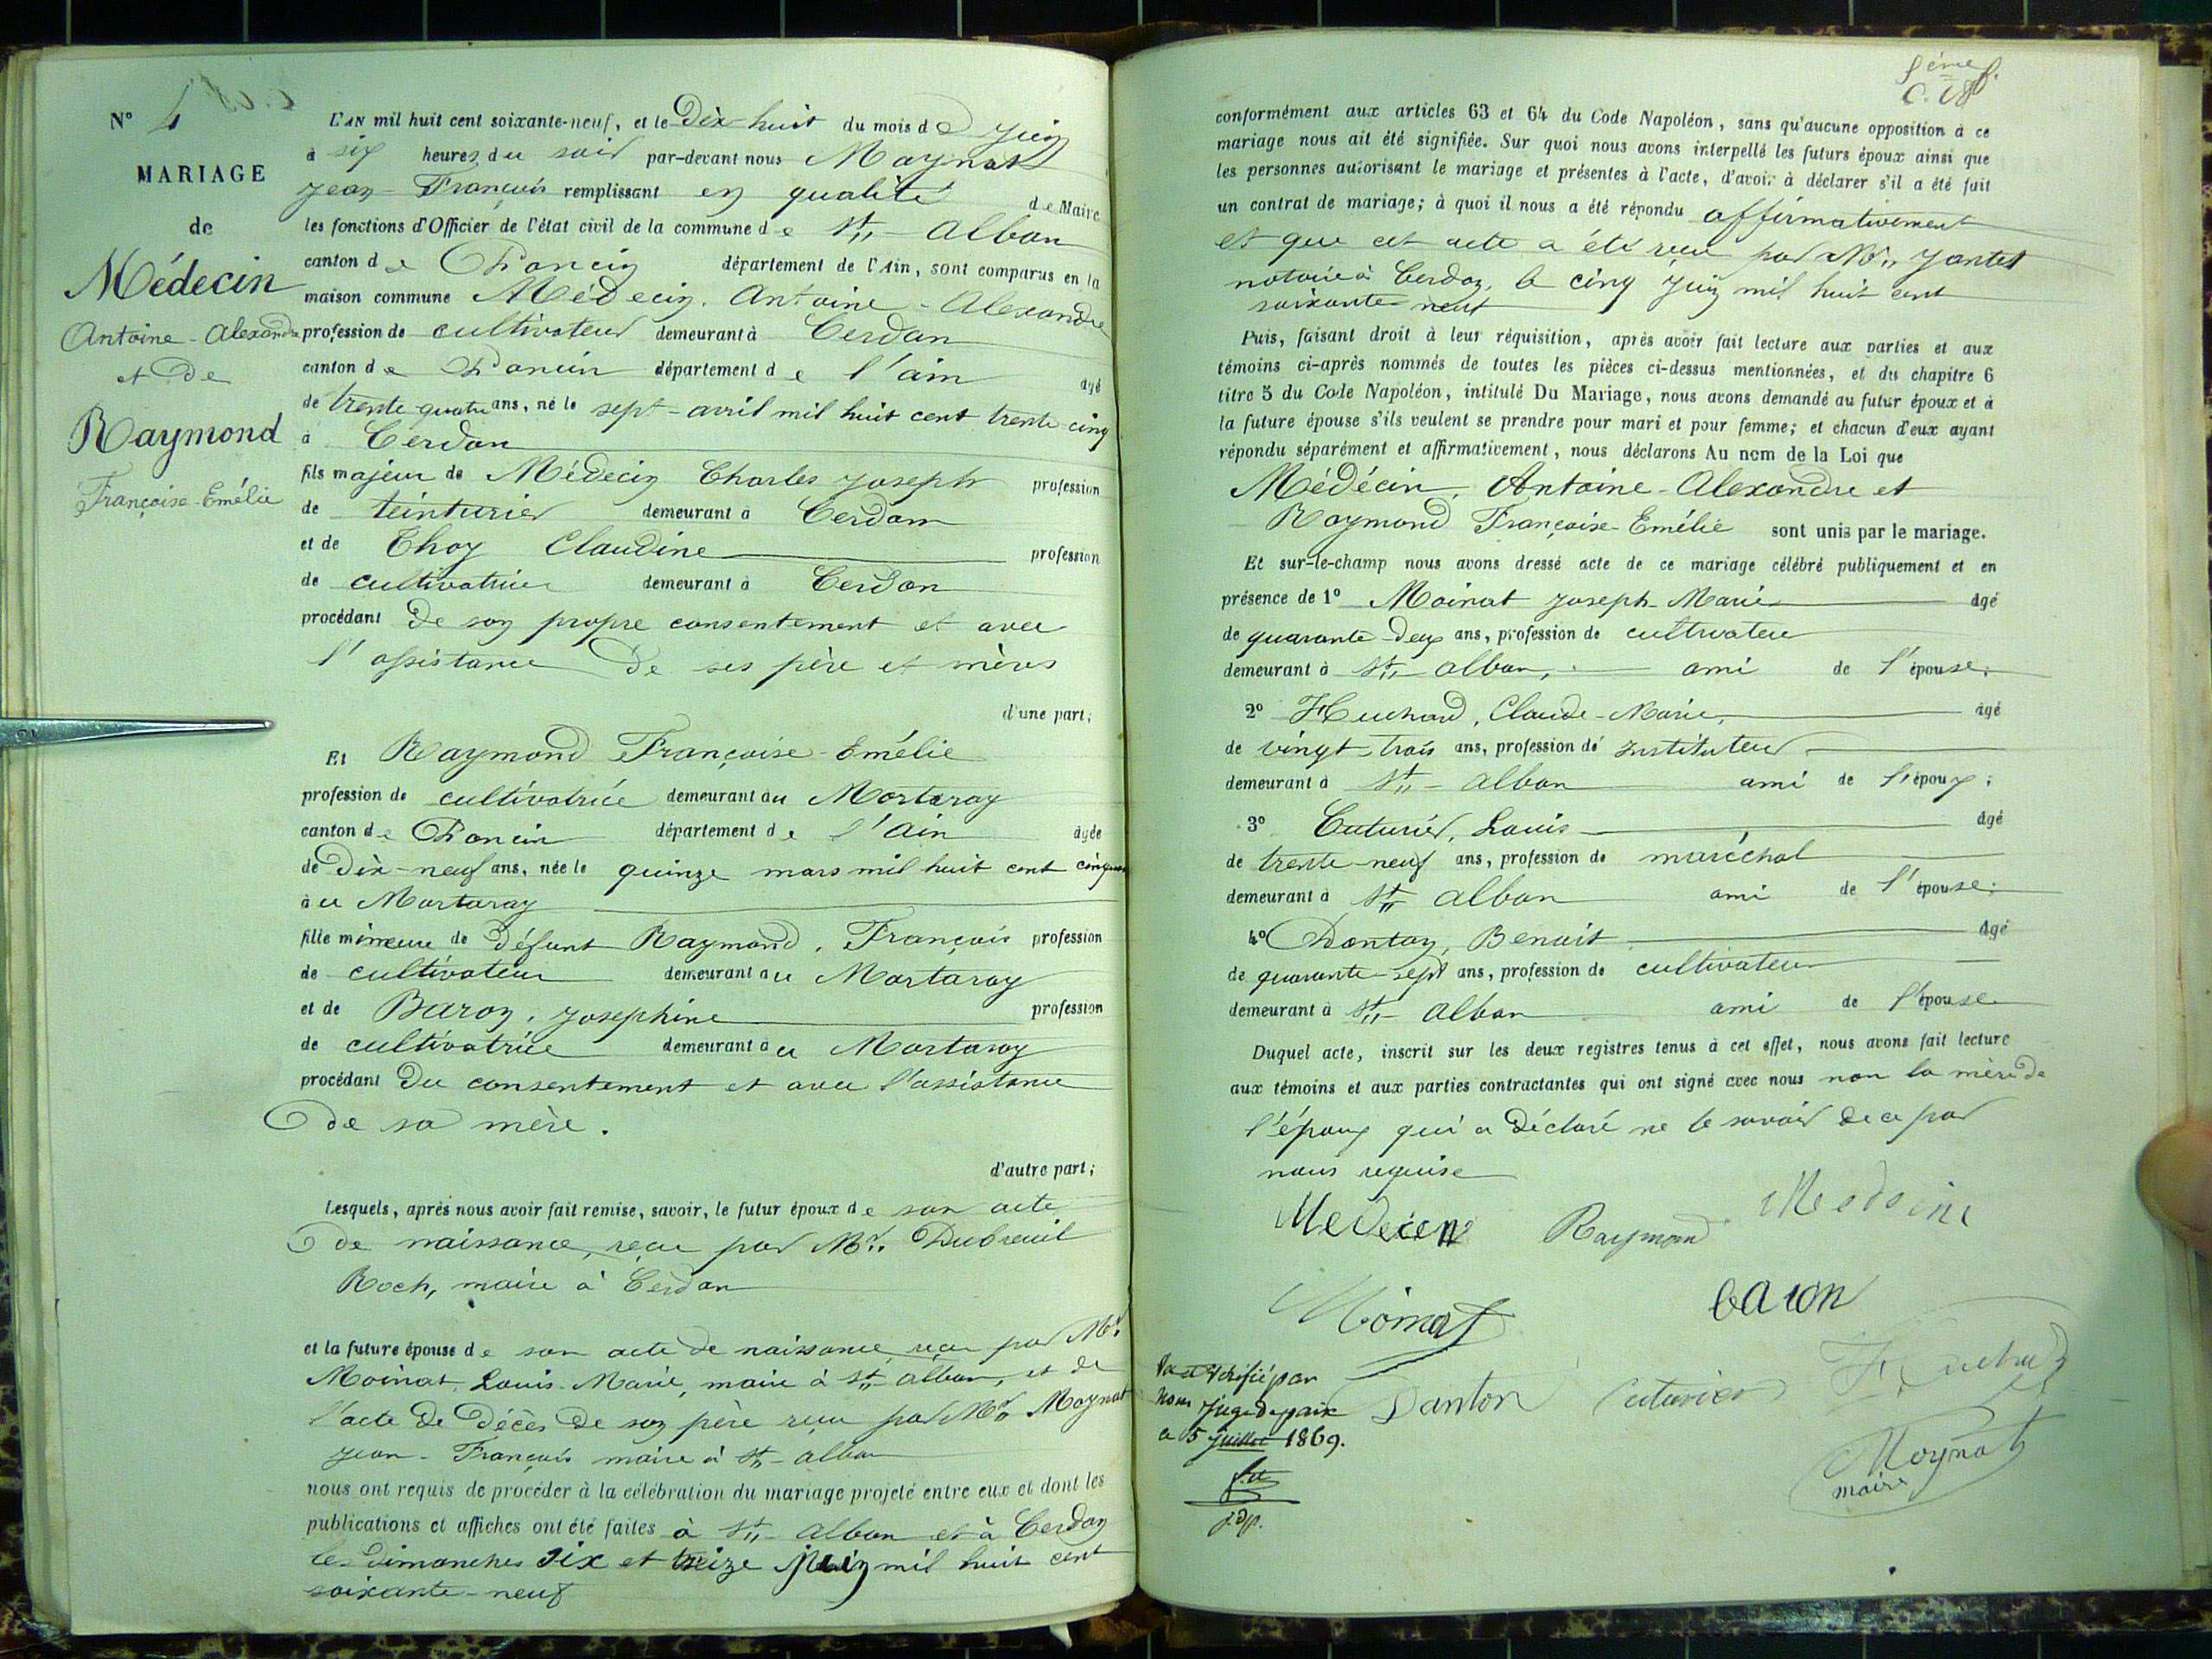 N° 4
MARIAGE
de
Médecin
Antoine-Alexandre
et de
Raymond
Françoise-Emélie
L'AN mil huit cent soixante-neuf, et le Dix-huit du mois de Juin
à six heures du soir par-devant nous Moynat
Jean-François remplissant en qualité de Maire
les fonctions d'Officier de l'état civil de la commune de St,, Alban
canton de Poncin département de l'Ain, sont comparus en la
maison commune Médecin. Antoine-Alexandre
profession de cultivateur demeurant à Cerdon
canton de Poncin département de l'ain âgé
de trente quatre ans, né le sept-avril mil huit cent trente cinq
à Cerdon
fils majeur de Médecin Charles Joseph profession
de teinturier demeurant à Cerdon
et de Choy Claudine profession
de cultivatrice demeurant à Cerdon
procédant de son propre consentement et avec
l'assistance de ses père et mères
d'une part;
Et Raymond Françoise-Emélie
profession de cultivatrice demeurant au Mortaray
canton de Poncin département de l'Ain âgée
de Dix-neuf ans, née le quinze mars mil huit cent cinquante
à u Mortaray
fille mineure de défunt Raymond, François profession
de cultivateur demeurant au Mortaray
et de Baron, Josephine profession
de cultivatrice demeurant au Mortaray
procédant du consentement et avec l'assistance
de sa mère.
d'autre part;
Lesquels, après nous avoir fait remise, savoir, le futur époux de son acte
de naissance, reçu par Mr,, Dubreuil
Roch, maire à Cerdon
et la future épouse de son acte de naissance reçu par Mr
Moinat, Louis-Marie, maire à St,, alban, et de
l'acte de Décès de son père reçu par Mr Moynat
Jean-François maire à St,, alban
nous ont requis de procéder à la célébration du mariage projeté entre eux et dont les
publications et affiches ont été faites à St,, Alban et à Cerdon
les dimanches six et treize Juin mil huit cent
soixante-neuf
conformément aux articles 63 et 64 du Code Napoléon, sans qu'aucune opposition à ce
mariage nous ait été signifiée. Sur quoi nous avons interpellé les futurs époux ainsi que
les personnes autorisant le mariage et présentes à l'acte, d'avoir à déclarer s'il a été fait
un contrat de mariage; à quoi il nous a été répondu affirmativement
et que cet acte a été reçu par Me,, Jantet
notaire à Cerdon, le cinq Juin mil huit cent
soixante neuf
Puis, faisant droit à leur réquisition, après avoir fait lecture aux parties et aux
témoins ci-après nommés de toutes les pièces ci-dessus mentionnées, et du chapitre 6
titre 5 du Code Napoléon, intitulé Du Mariage, nous avons demandé au futur époux et à
la future épouse s'ils veulent se prendre pour mari et pour femme; et chacun d'eux ayant
répondu séparément et affirmativement, nous déclarons Au nom de la Loi que
Médécin, Antoine-Alexandre et
Raymond Françoise-Emélie sont unis par le mariage.
Et sur-le-champ nous avons dressé acte de ce mariage célébré publiquement et en
présence de 1° Moinat Joseph-Marie âgé
de quarante-deux ans, profession de cultivateur
demeurant à St,, alban, ami de l'épouse;
2° Huchard, Claude-Marie, âgé
de vingt-trois ans, profession de Instituteur
demeurant à St,, Alban ami de l'époux;
3° Cuturier, Louis âgé
de trente-neuf ans, profession de maréchal
demeurant à St,, alban ami de l'épouse;
4° Danton, Benoit âgé
de quarante-sept ans, profession de cultivateur
demeurant à St,, Alban ami de l'épouse
Duquel acte, inscrit sur les deux registres tenus à cet effet, nous avons fait lecture
aux témoins et aux parties contractantes qui ont signé avec nous non la mère de
l'époux qui a déclaré ne le savoir de ce par
nous requise
Medecin Raymond Medecin
Moinat baron
Vu et Vérifié par
nous Juge de paix
ce 5 Juillet 1869.
j.d.p.
Danton Cuturier Huchard
Moynat
maire